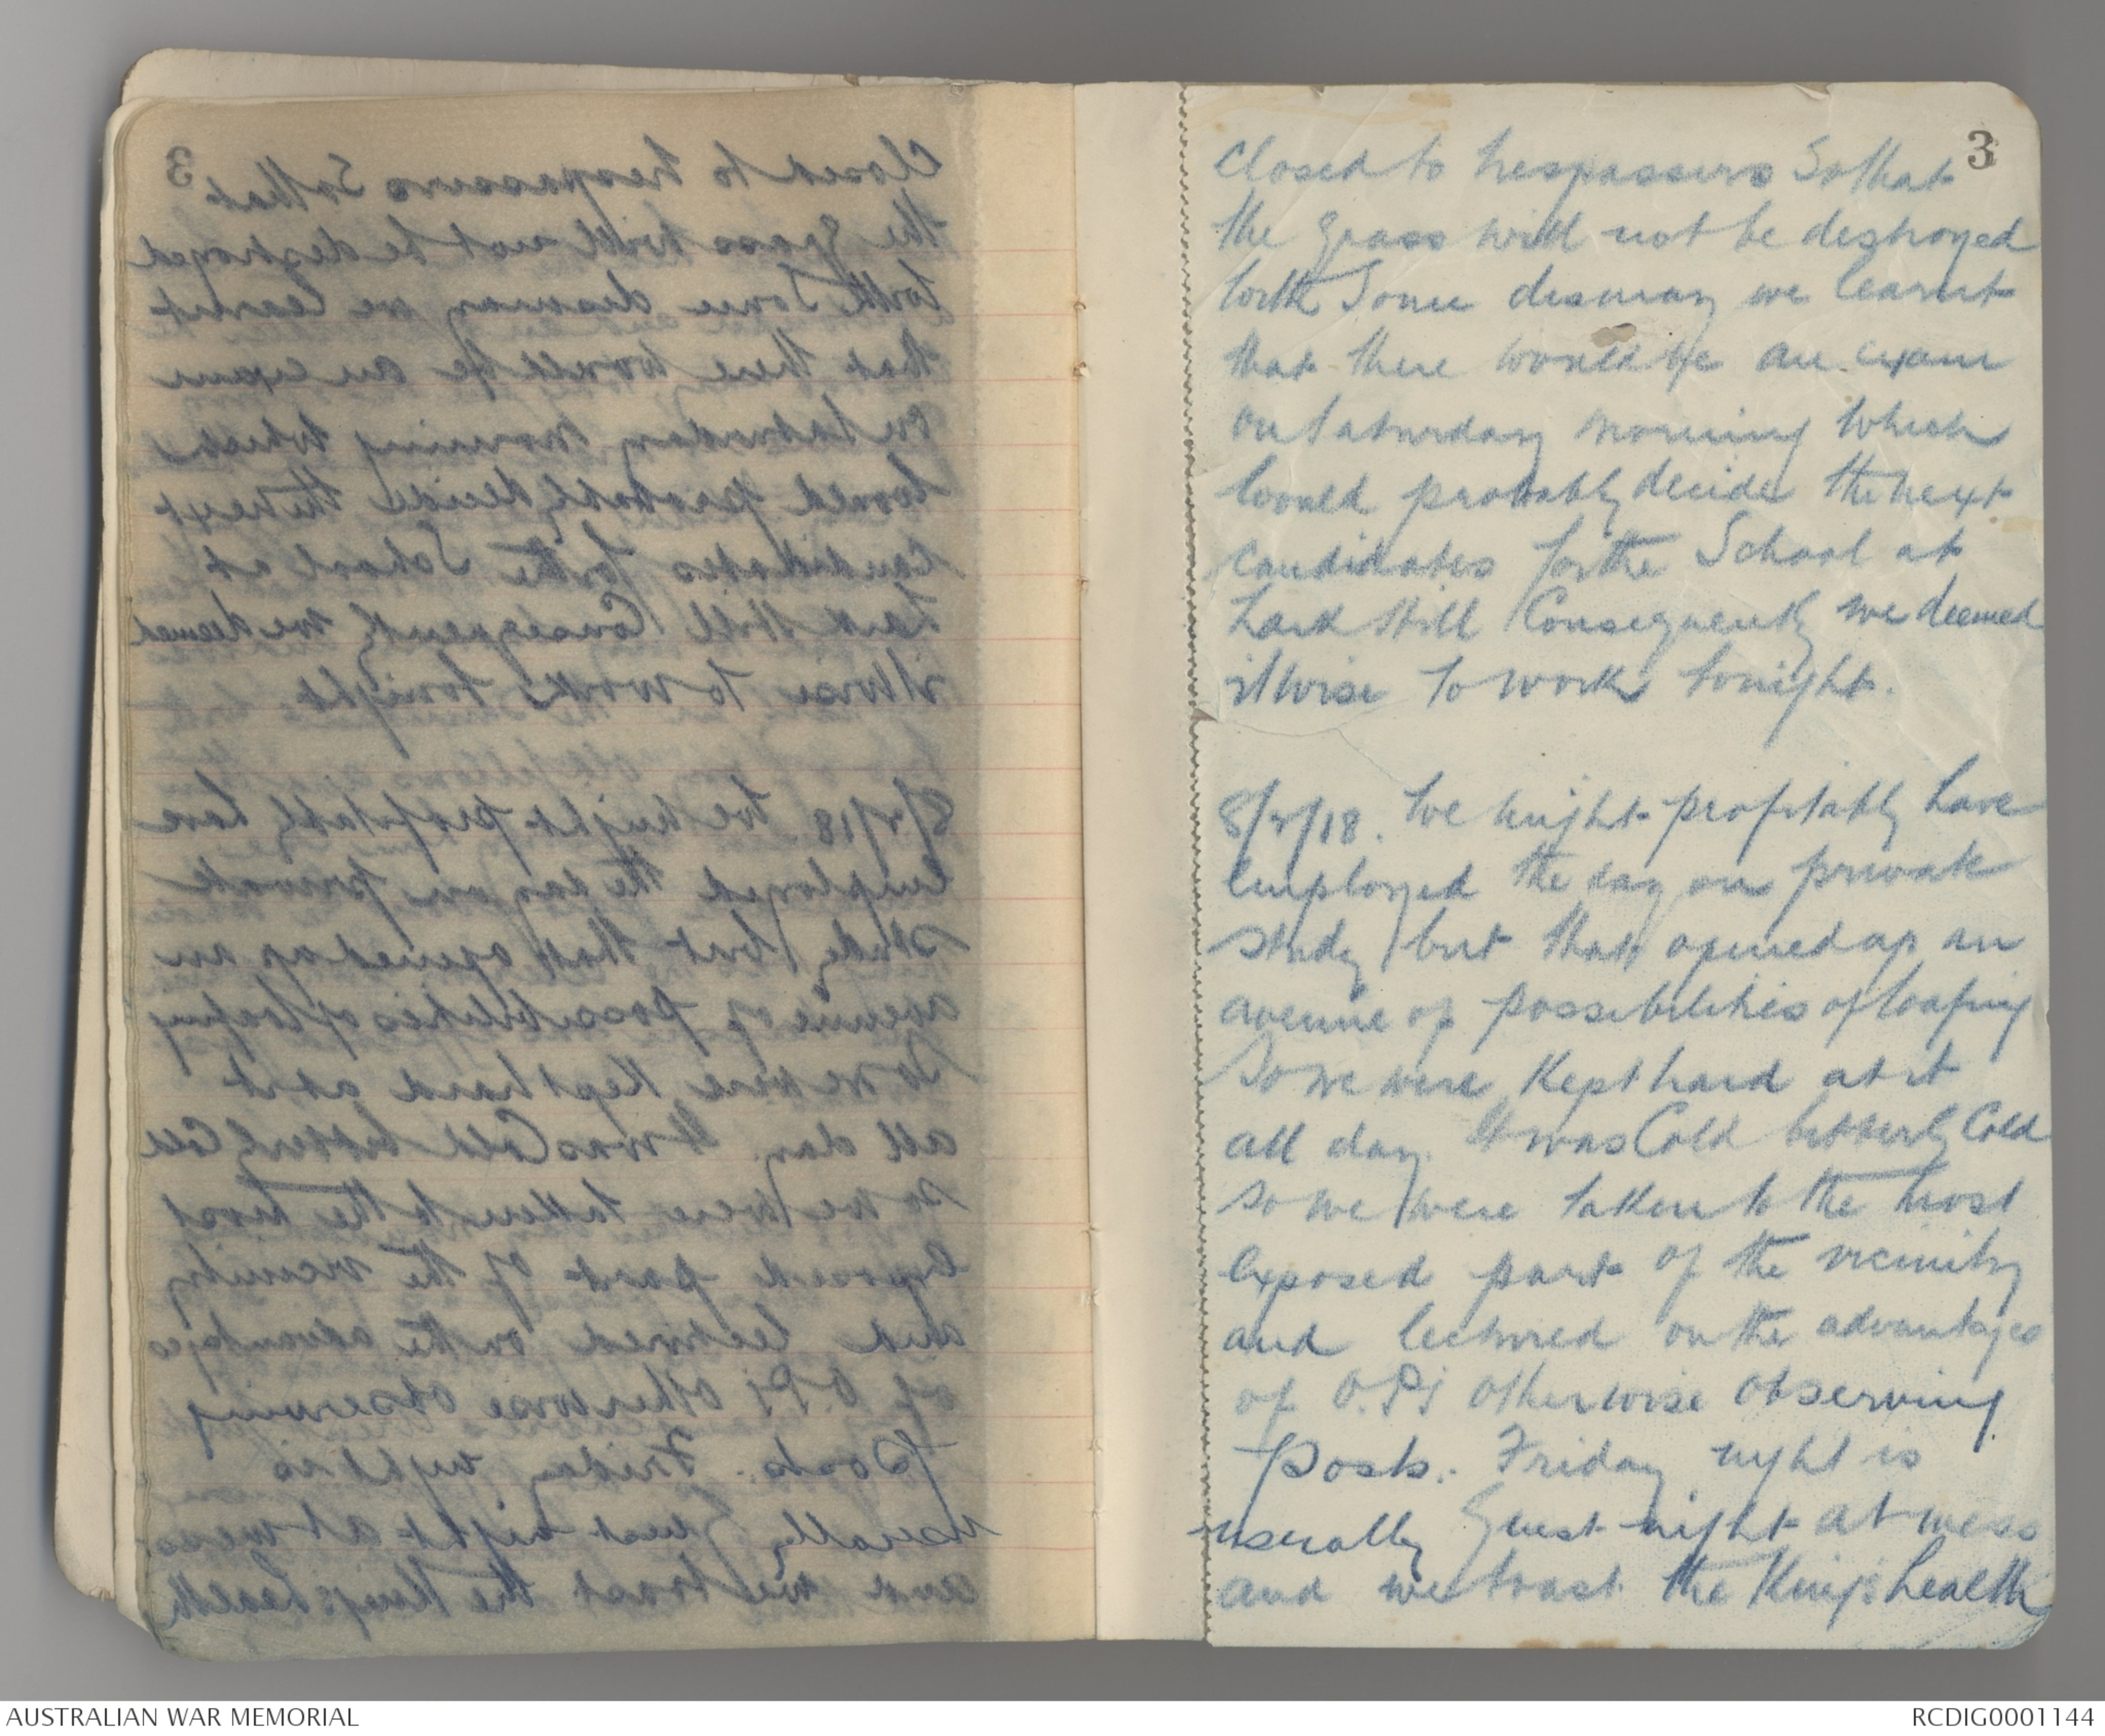 3
closed to trespassers So that
the grass will not be destroyed
With Some dismay we learnt
that there would be an exam
on Saturday morning which
would probably decide the next
candidates for the School at
Lark Hill Consequently we deemed
it wise to work tonight.
8/2/18. We might profitably have
employed the day on private
study but that opened up an
avenue of possibilities of loafing
So we were Kept hard at it
all day. It was Cold bitterly Cold
so we were taken to the most
exposed part of the vicinity
and lectured on the advantages
of O.P's otherwise observing
posts. Friday night is
usually Guest night at mess
and we toast the King's health
AUSTRALIAN WAR MEMORIAL
RCDIG0001144